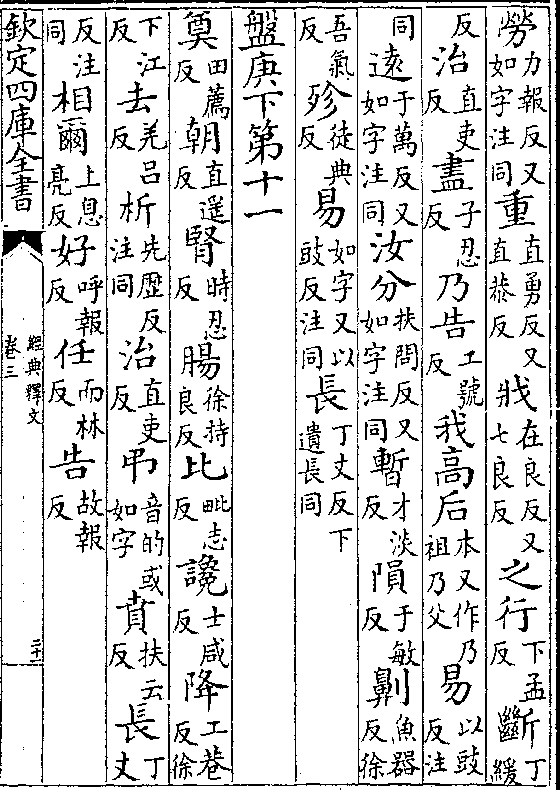 勞力報反又如字注同重直勇反又直恭反戕在良反又七良反之行下孟反斷丁緩
反治直吏反盡子忍反乃告工號反我高后本又作乃祖乃父易以豉反注
同遠于萬反又如字注同汝分扶問反又如字注同暫才淡反隕于敏反劓魚器反徐
吾氣反殄徒典反易如字又以豉反注同長丁丈反下遺長同
盤庚下第十一
奠田薦反朝直遥反腎時忍反腸徐持良反比毗志反讒士咸反降工巷反徐
下江反去羌呂反析先歷反注同治直吏反弔音的或如字賁扶云反長丁丈
反注同相爾上息亮反好呼報反任而林反告故報反
欽定四庫全書
經典釋文
卷三